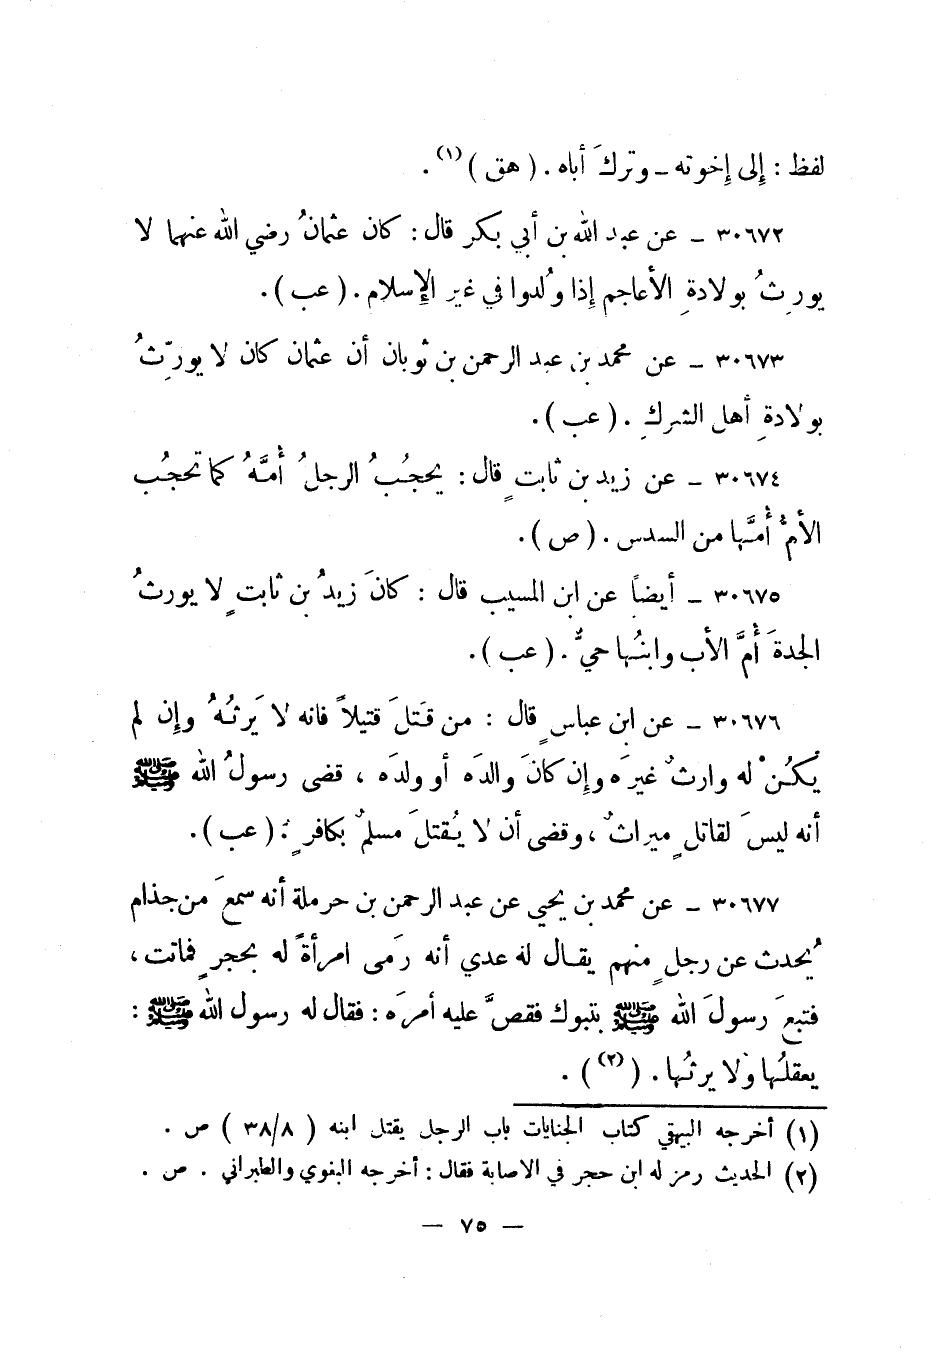 لفظ : إِلى إِخوته ـ وتركَ أباه . ( هق )(١) .
٣٠٦٧٢ ـ عن عبد الله بن أبي بكر قال : كان عثمانُ رضي الله عنهما لا
يورِثُ بولادةِ الأعاجم إِذا وُلدوا في غير الإِسلام . ( عب ) .
٣٠٦٧٣ ـ عن محمد بن عبد الرحمن بن ثوبان أن عثمان كان لا يورّثُ
بولادةِ أهل الشركِ . ( عب ) .
٣٠٦٧٤ ـ عن زيد بن ثابتٍ قال : يحجُبُ الرجلُ أُمَّهُ كما تحجُب
الأمُّ أُمَّها من السدس . ( ص ) .
٣٠٦٧٥ ـ أيضاً عن ابن المسيب قال : كانَ زيدُ بن ثابتٍ لا يورثُ
الجدةَ أُمَّ الأب وابنُها حيٌّ . ( عب ) .
٣٠٦٧٦ ـ عن ابن عباسٍ قال : من قَتلَ قتيلاً فانه لا يَرثُهُ وإِن لم
يكُنْ له وارثٌ غيرَه وإِن كانَ والدَه أو ولدَه ، قضى رسولُ الله ﷺ
أنه ليسَ لقاتلٍ ميراثٌ ، وقضى أن لا يُقتلَ مسلمٌ بكافرٍ . ( عب ) .
٣٠٦٧٧ ـ عن محمد بن يحيي عن عبد الرحمن بن حرملة أنه سمعَ من جذام
يُحدث عن رجلٍ منهم يقال له عدي أنه رَمى امرأةً له بحجرٍ فماتت ،
فتبعَ رسولَ الله ﷺ بتبوك فقصَّ عليه أمرَه : فقال له رسول الله ﷺ :
يعقلُها ولا يرثُها . ( (٢) ) .
(١) أخرجه البيهقي كتاب الجنايات باب الرجل يقتل ابنه ( ٣٨/٨ ) ص .
(٢) الحديث رمز له ابن حجر في الاصابة فقال : أخرجه البغوي والطبراني . ص .
— ٧٥ —